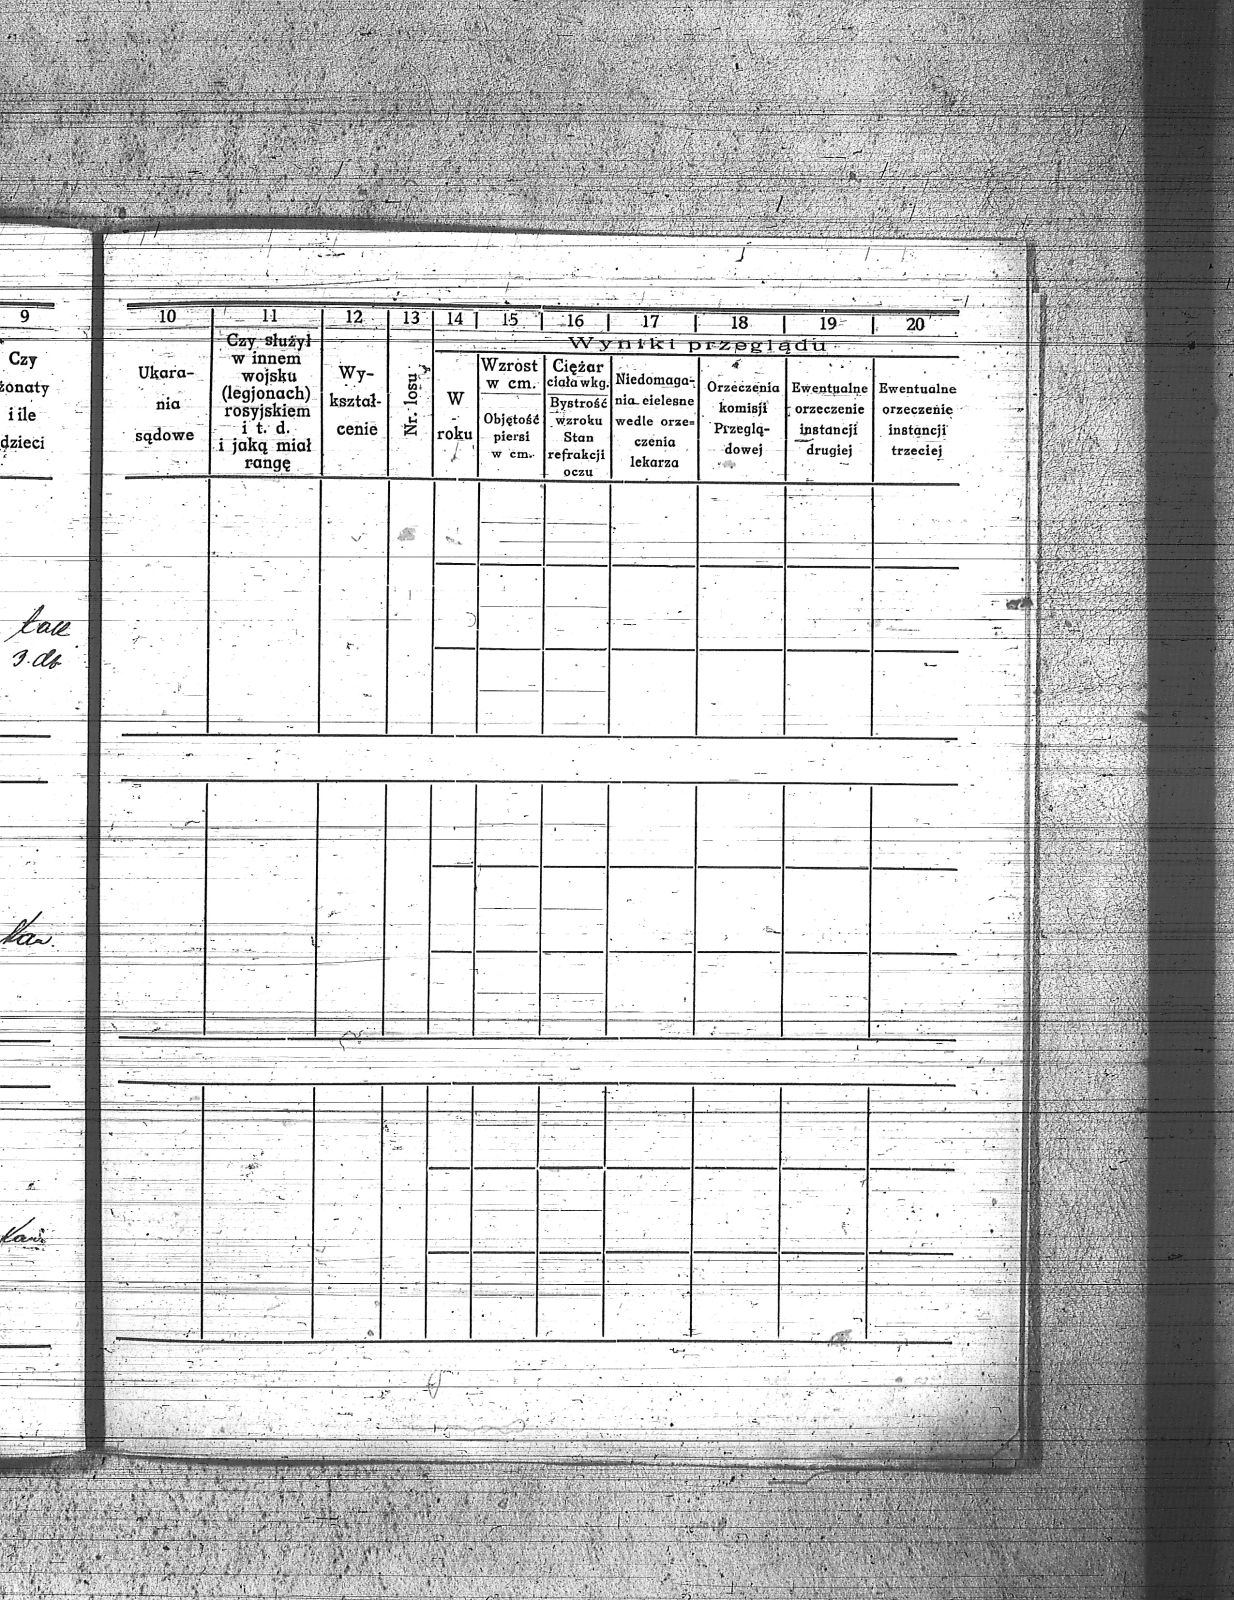 9
Czy
żonaty
i ile
dzieci
tak
3. db
Kaw.
Kaw.
10
11
12
13
14
15
16
17
18
19
20
Wyniki przeglądu
Ukara-
nia
sądowe
Czy służył
w innem
wojsku
(legjonach)
rosyjskiem
i t. d.
i jaką miał
rangę
Wy-
kształ-
cenie
Nr. losu
W
roku
Wzrost
w cm.
Objętość
piersi
w cm.
Ciężar
ciała w kg.
Bystrość
wzroku
Stan
refrakcji
oczu
Niedomaga-
nia cielesne
wedle orze-
czenia
lekarza
Orzeczenia
komisji
Przeglą-
dowej
Ewentualne
orzeczenie
instancji
drugiej
Ewentualne
orzeczenie
instancji
trzeciej